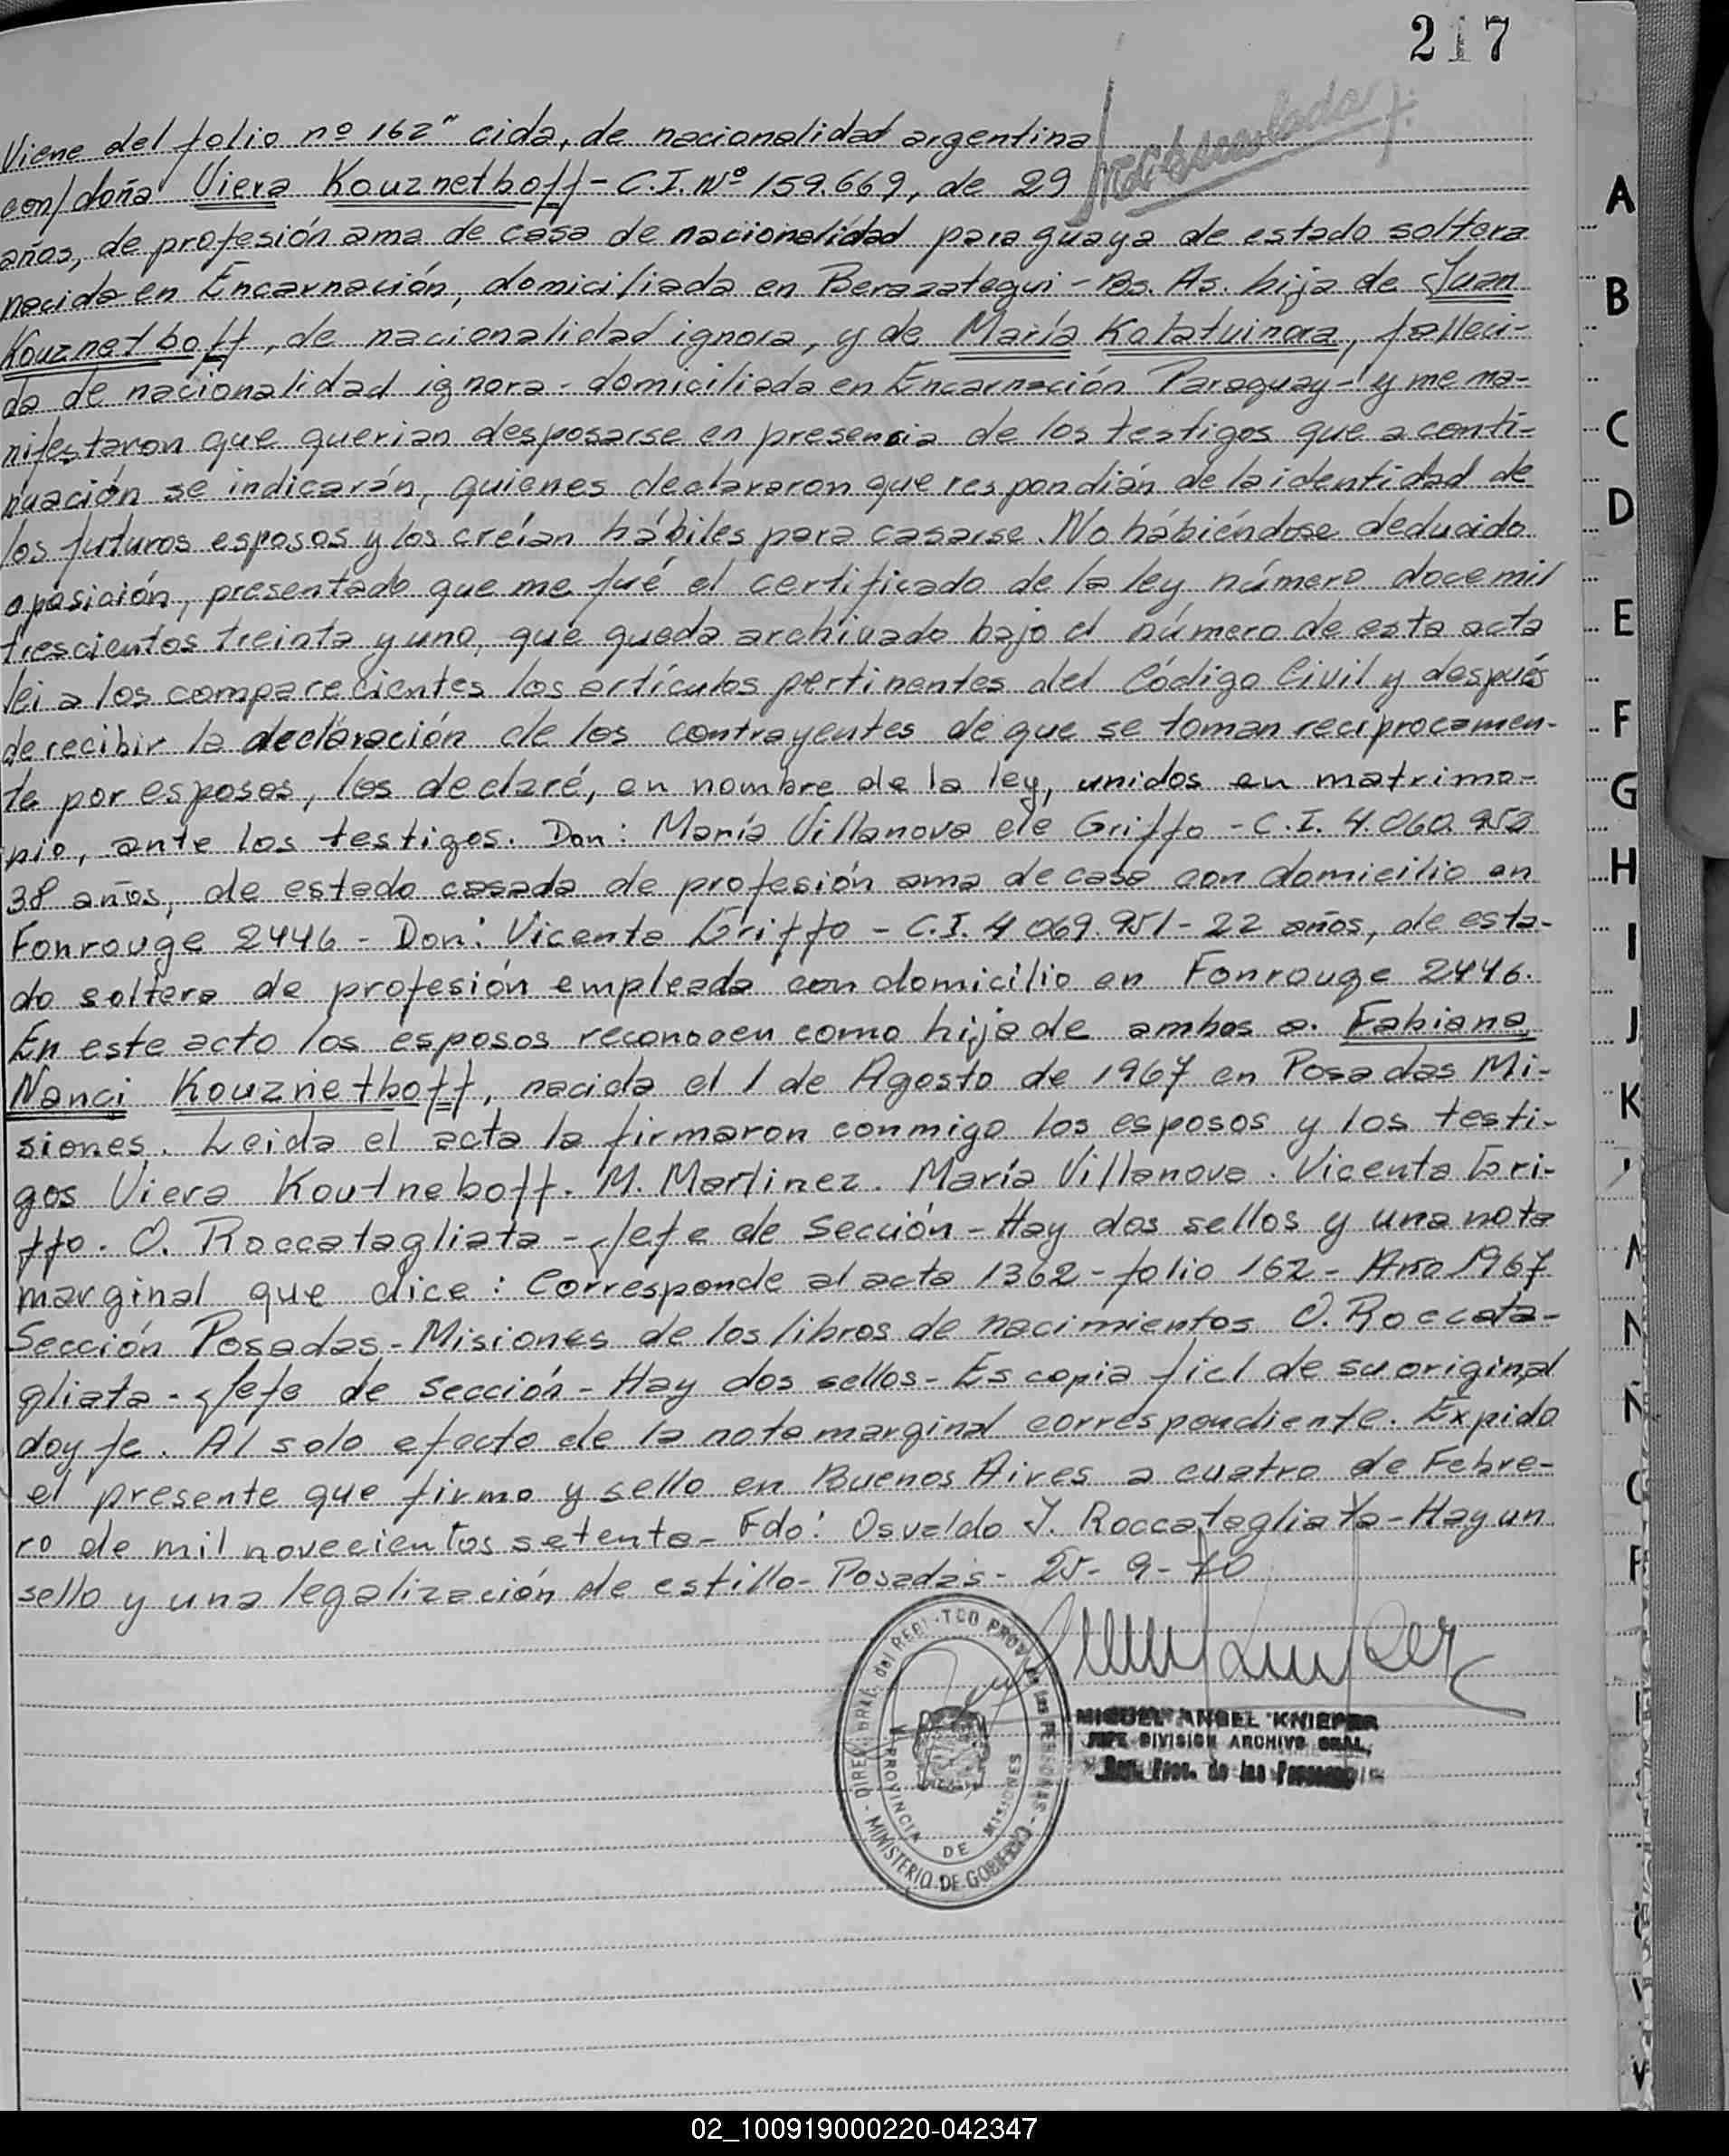 217
Viene del folio nº 162" cida, de nacionalidad argentina
con/doña Viera Kouznethoff - C.I. Nº 159.669, de 29
años, de profesión ama de casa de nacionalidad paraguaya de estado soltera
nacida en Encarnación, domiciliada en Berazategui - Bs. As. hija de Juan
Kouznethoff, de nacionalidad ignora, y de María Kolatuinora, falleci-
da de nacionalidad ignora - domiciliada en Encarnación Paraguay - y me ma-
nifestaron que querian desposarse en presencia de los testigos que a conti-
nuación se indicarán, quienes declararon que respondián de la identidad de
los futuros esposos y los creían hábiles para casarse. No habiéndose deducido
oposición, presentado que me fué el certificado de la ley número doce mil
trescientos treinta y uno, que queda archivado bajo el número de esta acta
lei a los comparecientes los artículos pertinentes del Código Civil y después
de recibir la declaración de los contrayentes de que se toman reciprocamen-
te por esposos, los declaré, en nombre de la ley, unidos en matrimo-
nio, ante los testigos. Don: María Villanova de Griffo - C.I. 4.060.952
38 años, de estado casada de profesión ama de casa con domicilio en
Fonrouge 2446 - Don: Vicenta Griffo - C.I. 4 069.951 - 22 años, de esta-
do soltera de profesión empleada con domicilio en Fonrouge 2446.
En este acto los esposos reconocen como hija de ambos a. Fabiana
Nanci Kouznethoff, nacida el 1 de Agosto de 1967 en Posadas Mi-
siones. Leida el acta la firmaron conmigo los esposos y los testi-
gos Viera Koutneboff. M. Martinez. María Villanova. Vicenta Gri-
ffo. O. Roccatagliata - Jefe de Sección - Hay dos sellos y una nota
marginal que dice: Corresponde al acta 1362 - folio 162 - Año 1967
Sección Posadas - Misiones de los libros de nacimientos O. Roccata-
gliata - Jefe de Sección - Hay dos sellos - Es copia fiel de su original
doy fe. Al solo efecto de la nota marginal correspondiente. Expido
el presente que firmo y sello en Buenos Aires a cuatro de Febre-
ro de mil novecientos setenta - Fdo: Osvaldo J. Roccatagliata - Hay un
sello y una legalización de estillo - Posadas - 25 - 9 - 70
DIREC. GRAL. del REGISTRO PROV. de las PERSONAS
MINISTERIO DE GOBIERNO
PROVINCIA DE MISIONES
MIGUEL ANGEL KNIEPER
JEFE DIVISION ARCHIVO GRAL.
Reg. Prov. de las Personas
A
B
C
D
E
F
G
H
I
J
K
N
Ñ
02_100919000220-042347